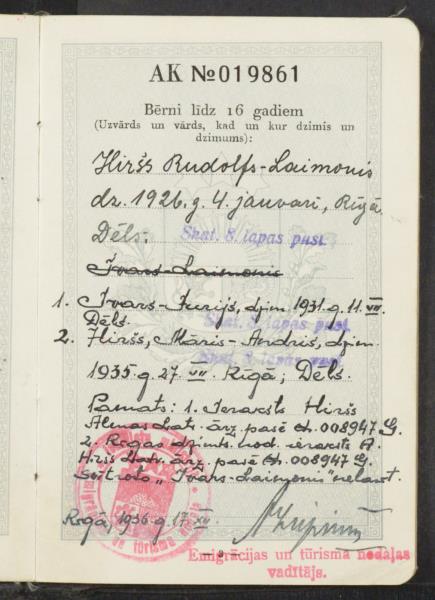 AK № 019861
Bērni līdz 16 gadiem
(Uzvārds un vārds, kad un kur dzimis un
dzimums):
Hiršs Rudolfs-Laimonis
dz. 1926. g. 4. janvarī, Rīgā
Dēls. Skat. 8. lapas pusi.
Ivars-Laimonis
1. Ivars-Jurijs, dzim. 1931. g. 11. VII.
Dēls. Skat. 8. lapas pusi.
2. Hiršs, Māris-Andris, dzim.
Skat. 8. lapas pusi.
1935. g. 27. VII. Rīgā, Dēls.
Pamats: 1. Ieraksts Hiršs
Almas Latv. ārz. pasē 008947 G.
2. Rīgas dzimts. nod. ieraksts A.
Hiršs Latv. ārz. pasē 008947 G.
Svītrots „Ivars-Laimonis"
Rīgā, 1936. g. 17. XII
Emigrācijas un tūrisma nodaļas
vadītājs.